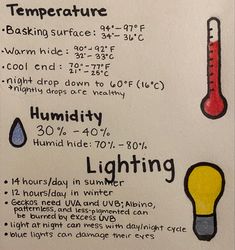 Temperature
• Basking surface: 94°-97°F
34°-36°C
• Warm hide: 90°-92°F
32°-33°C
• Cool end: 70°-77°F
21°-25°C
• night drop down to 60°F (16°C)
→ nightly drops are healthy
Humidity
30% - 40%
Humid hide: 70% - 80%
Lighting
• 14 hours/day in summer
• 12 hours/day in winter
• Geckos need UVA and UVB; Albino,
patternless, and less-pigmented can
be burned by excess UVB
• light at night can mess with day/night cycle
• blue lights can damage their eyes